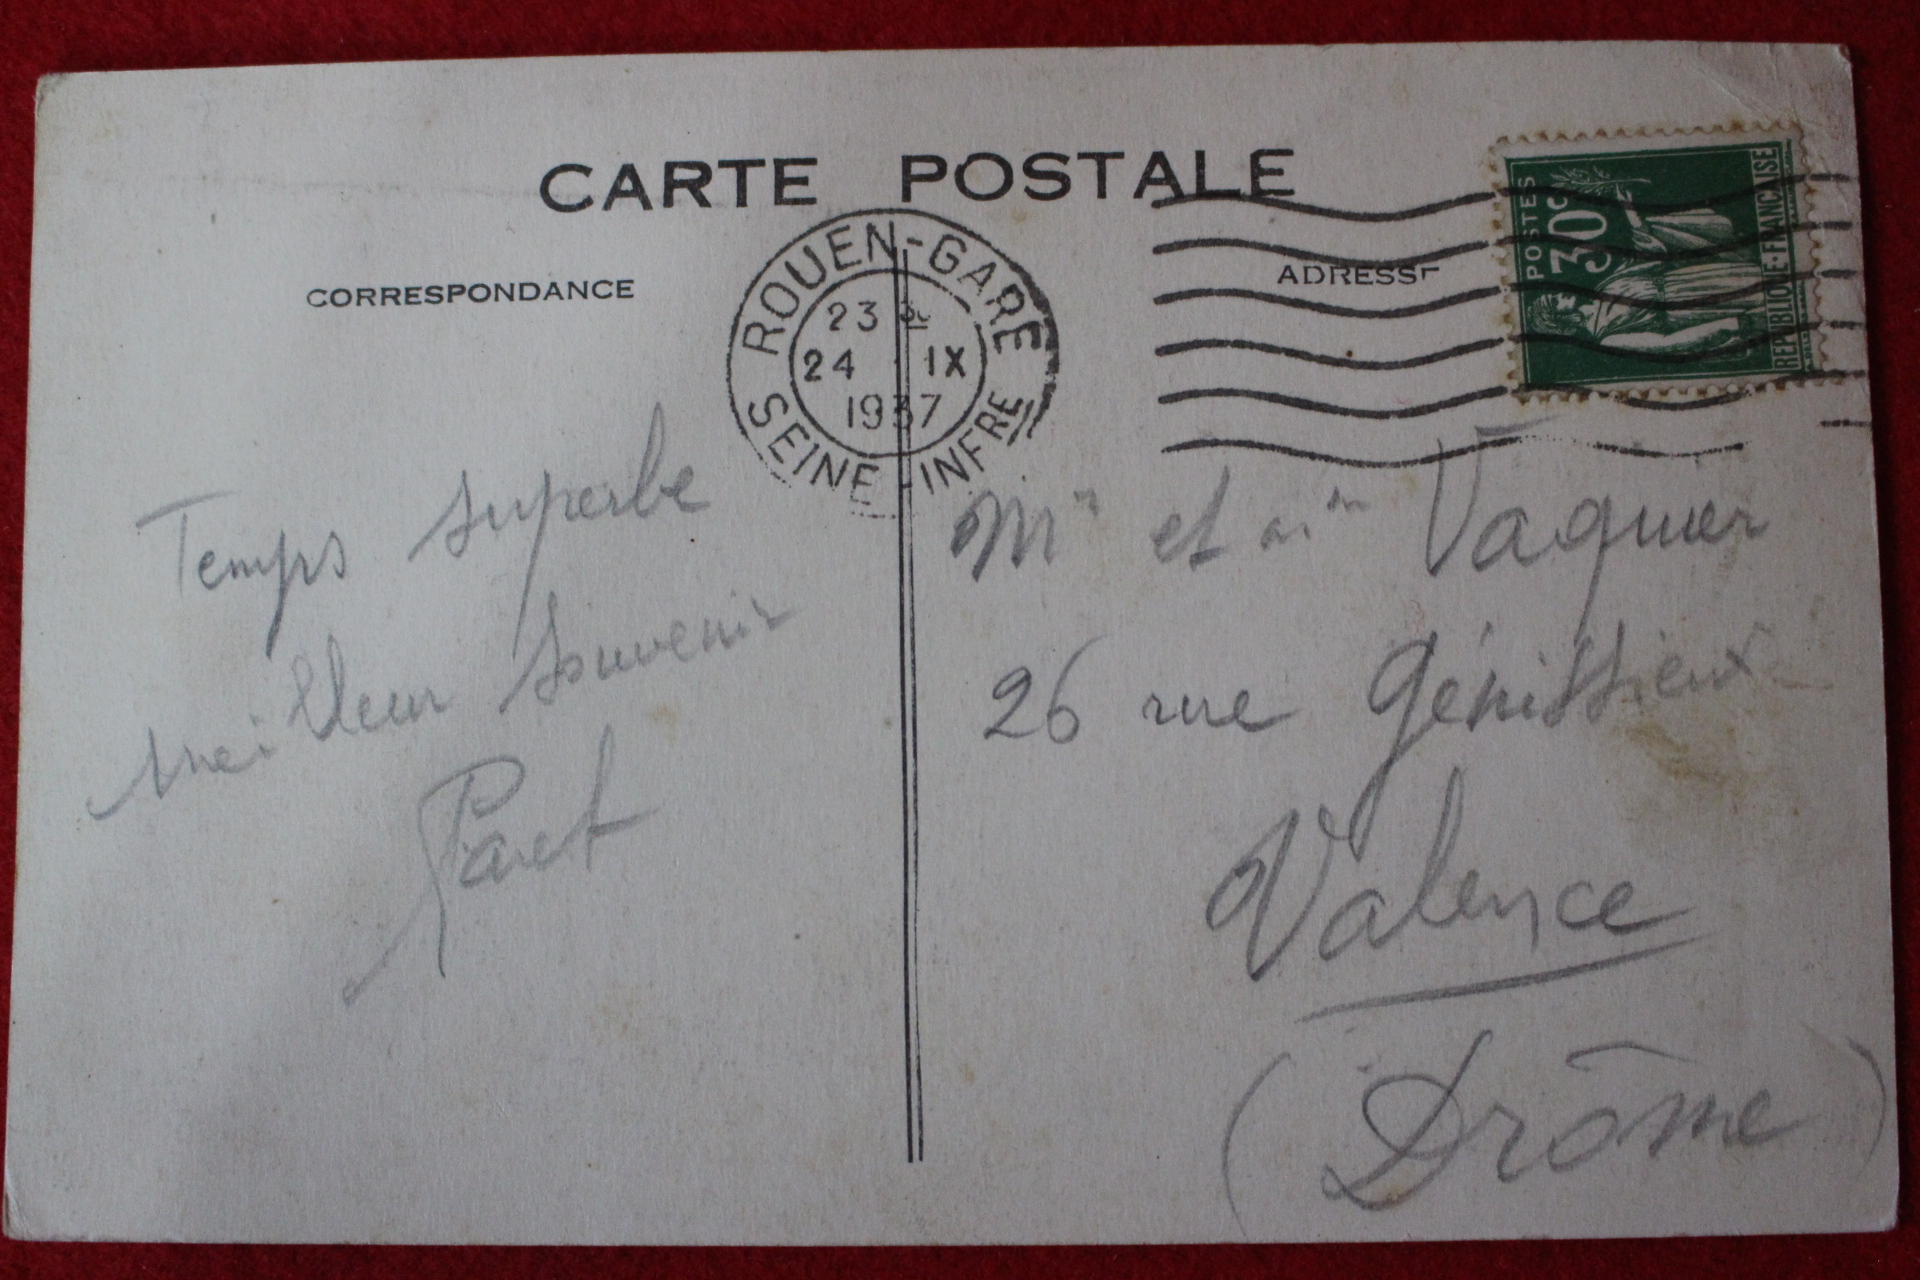 CARTE POSTALE
CORRESPONDANCE
ADRESSE
ROUEN-GARE
23 30
24 IX
1937
SEINE-INFRE
POSTES
30c
REPUBLIQUE·FRANCAISE
Temps superbe
meilleur souvenir
Paret
Mr et Mm Vaquier
26 rue Génissieux
Valence
(Drôme)